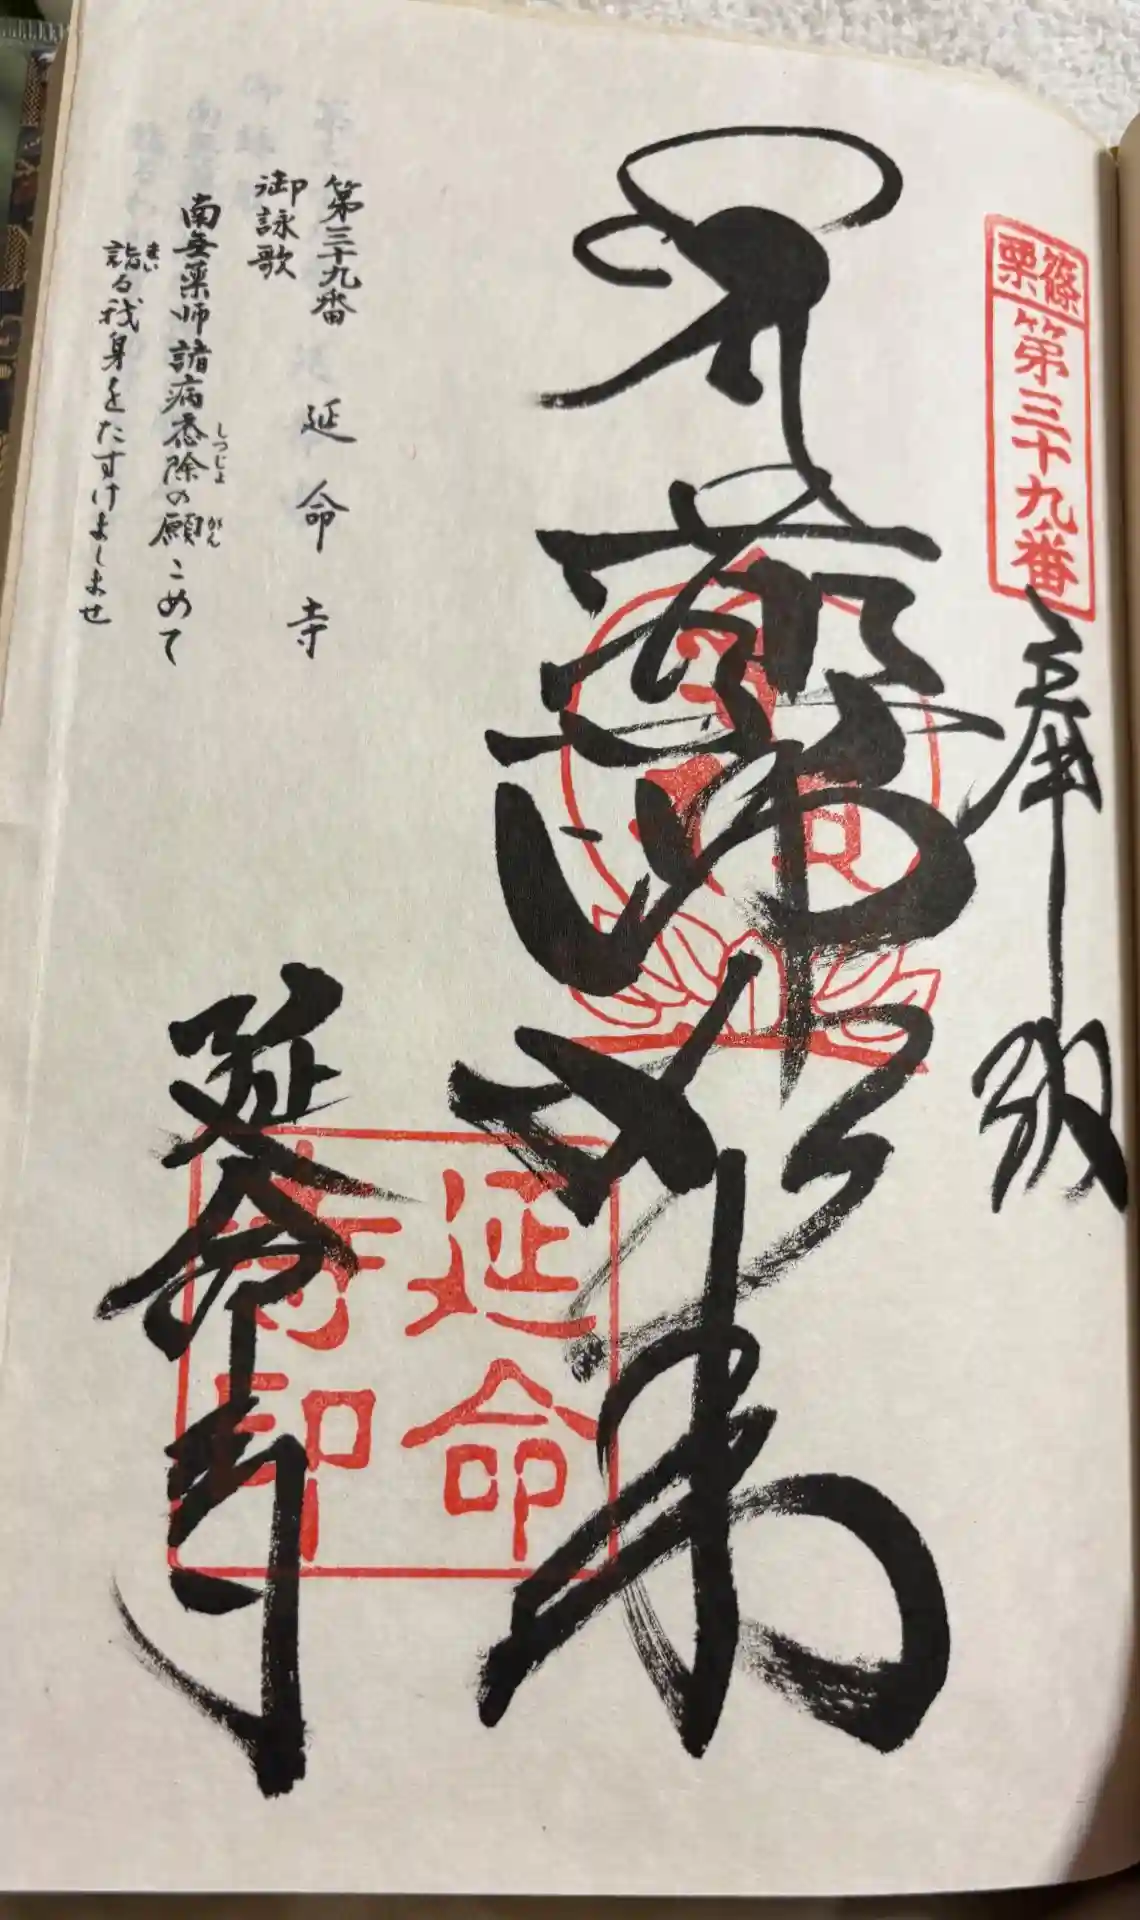 篠栗
第三十九番
奉納
薬師如来
延命寺印
延命寺
第三十九番 延命寺
御詠歌
南無薬師諸病悉除の願こめて
しつじょ
がん
詣る我身をたすけましませ
まい